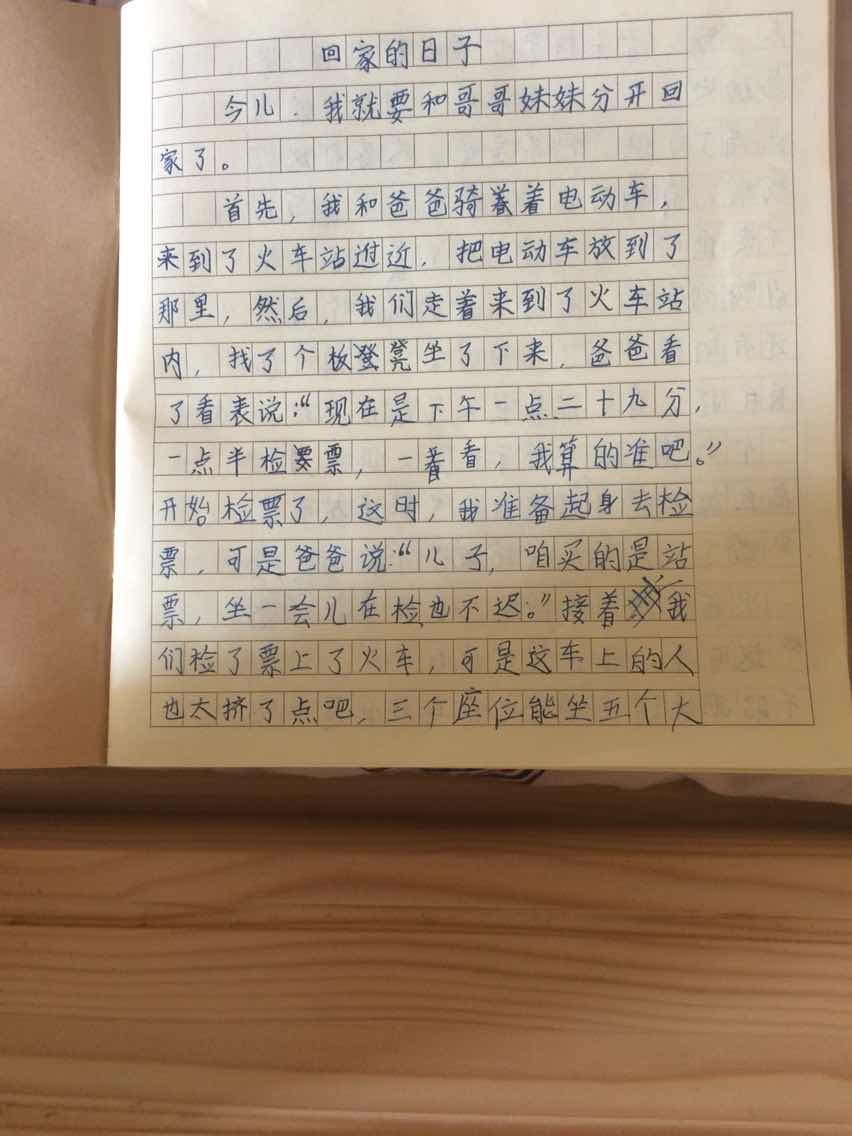 回家的日子
今儿，我就要和哥哥妹妹分开回
家了。
首先，我和爸爸骑着着电动车，
来到了火车站附近，把电动车放到了
那里，然后，我们走着来到了火车站
内，找了个板凳坐了下来，爸爸看
了看表说：“现在是下午一点二十九分，
一点半检票，一看看，我算的准吧。”
开始检票了，这时，我准备起身去检
票，可是爸爸说：“儿子，咱买的是站
票，坐一会儿在检也不迟。”接着，我
们检了票上了火车，可是这车上的人
也太挤了点吧，三个座位能坐五个大